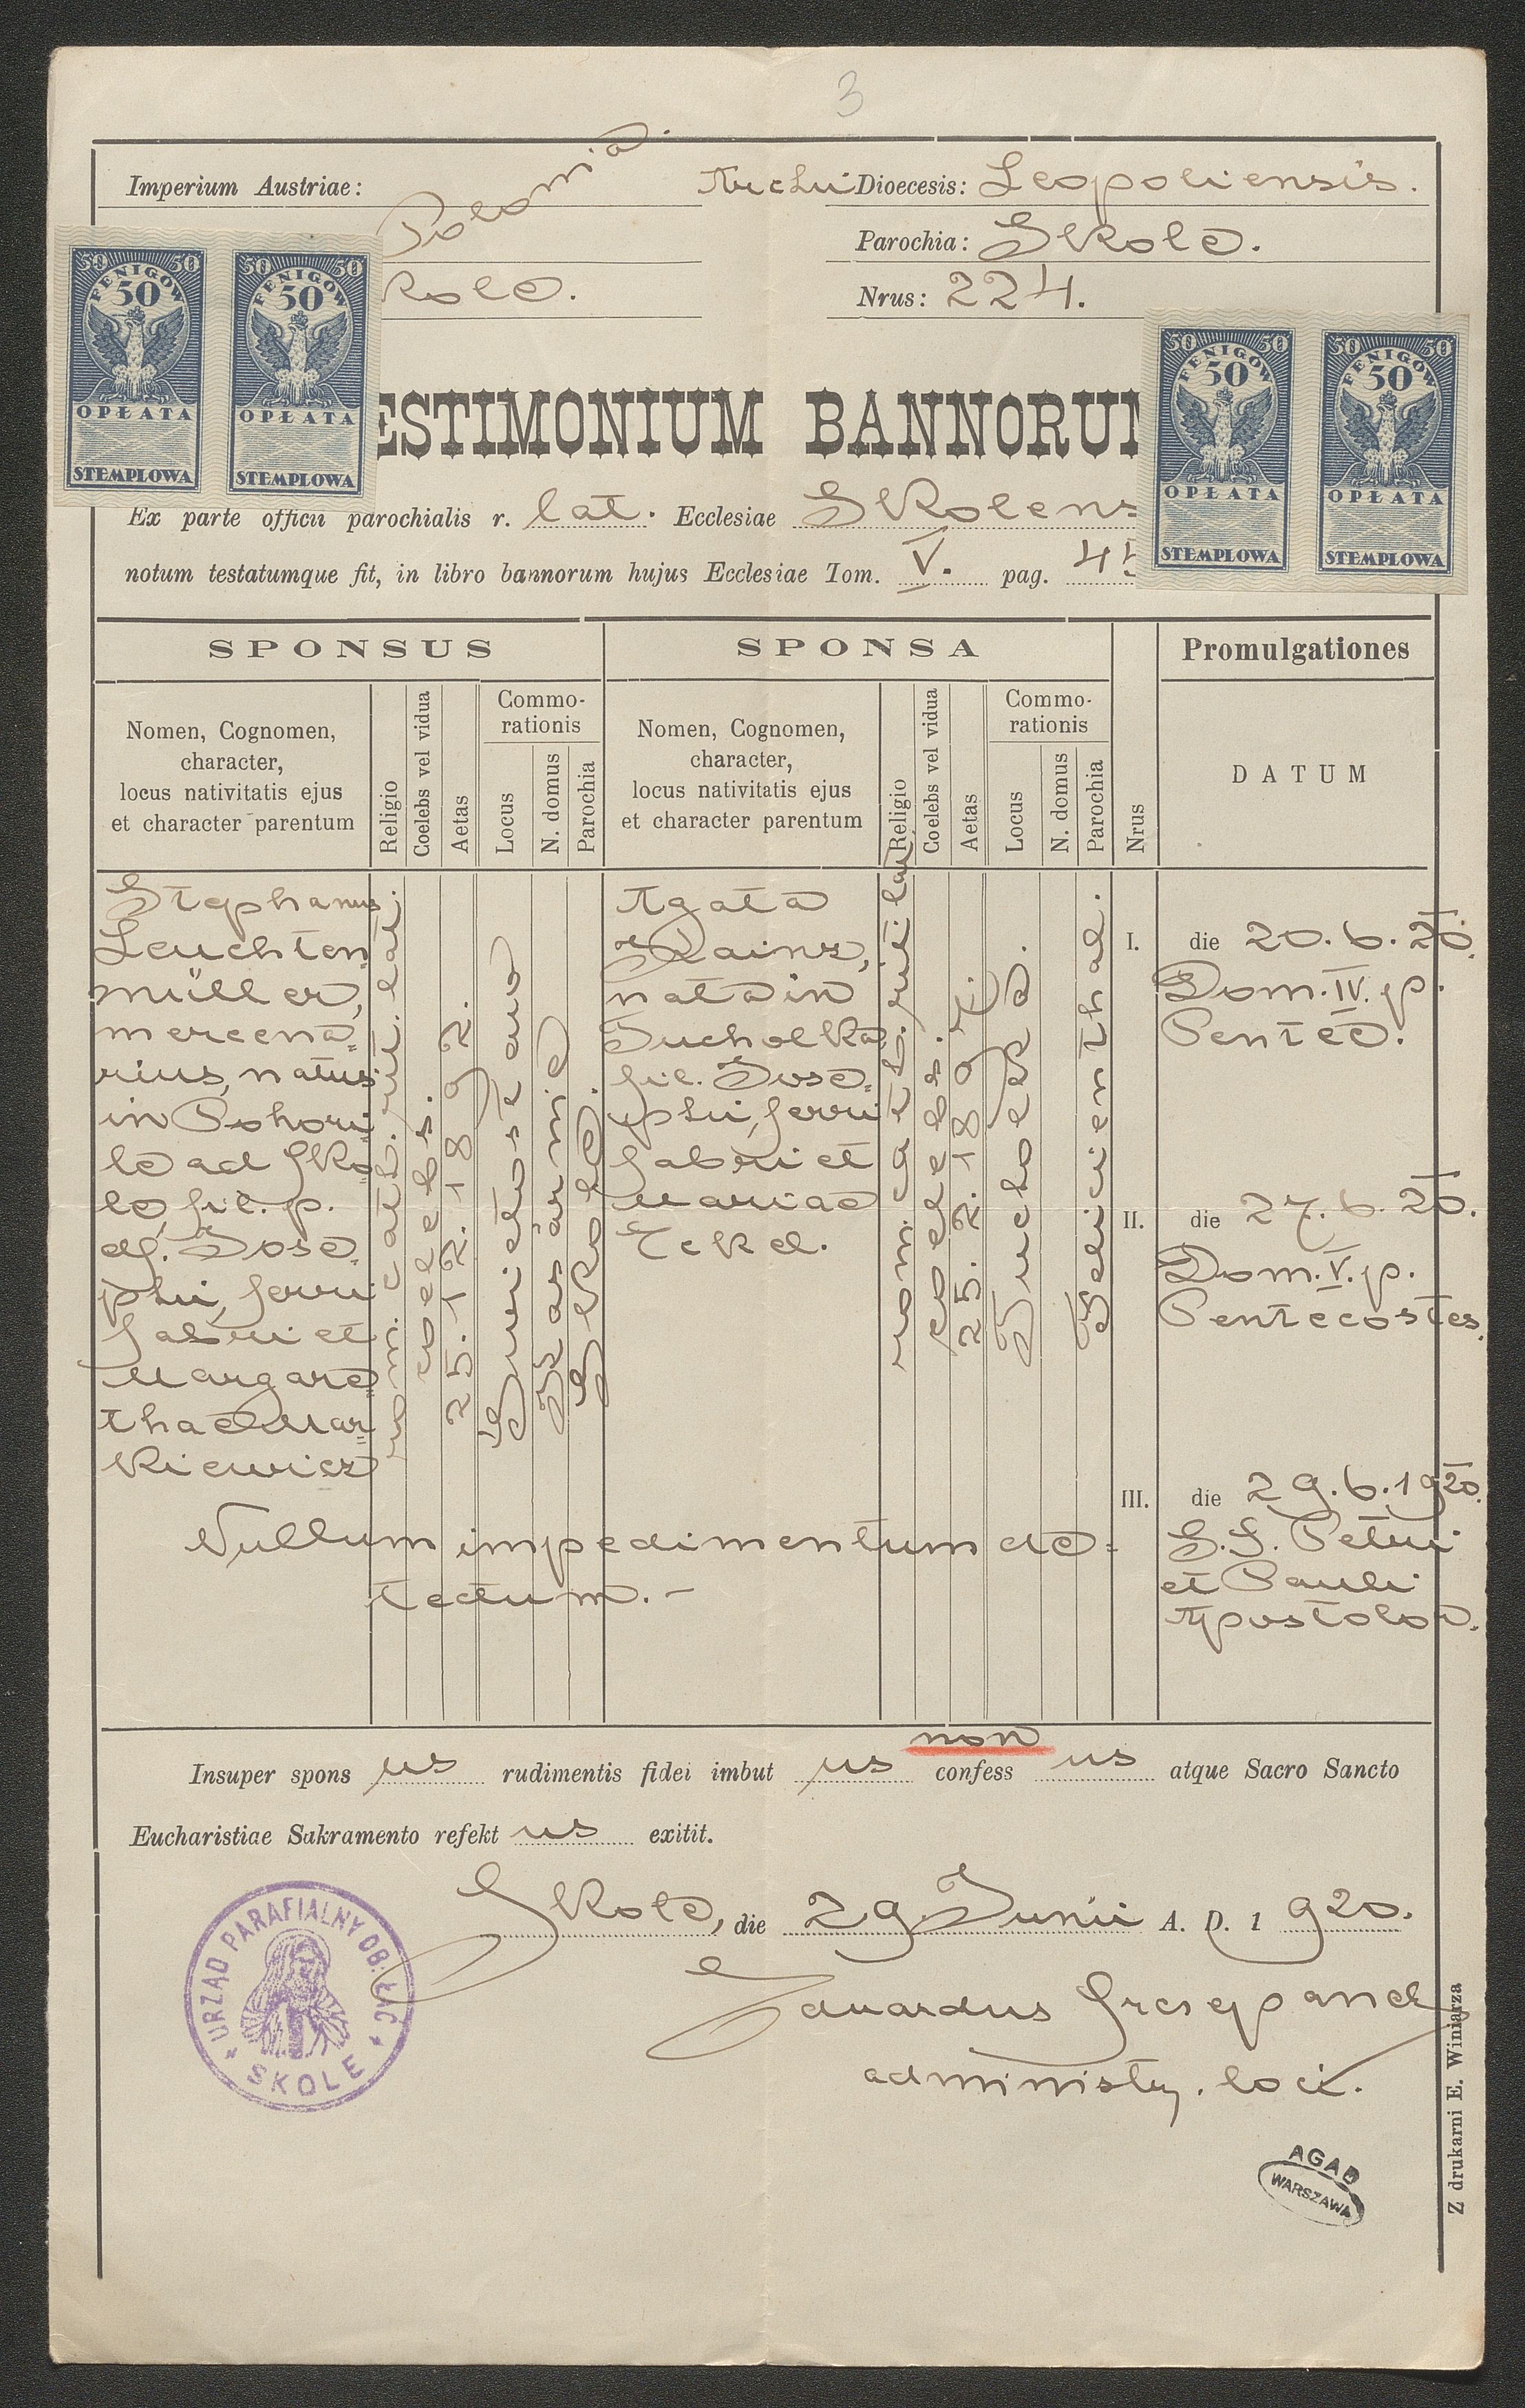 3
Imperium Austriae: Polonia.
Archi Dioecesis: Leopoliensis.
Parochia: Skole.
kole.
Nrus: 224.
50 50
FENIGÓW
50
OPŁATA
STEMPLOWA
50 50
FENIGÓW
50
OPŁATA
STEMPLOWA
50 50
FENIGÓW
50
OPŁATA
STEMPLOWA
50 50
FENIGÓW
50
OPŁATA
STEMPLOWA
ESTIMONIUM BANNORUM
Ex parte officii parochialis r. lat. Ecclesiae Skolens
notum testatumque fit, in libro bannorum hujus Ecclesiae Tom. V. pag. 45
SPONSUS
Nomen, Cognomen,
character,
locus nativitatis ejus
et character parentum
Religio
Coelebs vel vidua
Aetas
Commo-
rationis
Locus
N. domus
Parochia
SPONSA
Nomen, Cognomen,
character,
locus nativitatis ejus
et character parentum
Religio
Coelebs vel vidua
Aetas
Commo-
rationis
Locus
N. domus
Parochia
Nrus
Promulgationes
DATUM
Stephanus
Leuchten=
müller,
mercena=
rius, natus
in Pohori=
le ad Sko=
le, fil. p.
df. Jose=
phi, ferri
fabri et
Margare=
thae Mar=
kiewicz
rom. cath. rit. lat.
coelebs.
25. 12. 1892.
Skole.
Agata
Kainz,
nata in
Tucholka
fil. Jose=
phi, ferri
fabri et
Mariae
Eckel.
rom. cath. riti lat.
coelebs.
25. 2. 1897.
Felicienthal.
I. die 20. 6. 20.
Dom. IV. p.
Pentec.
II. die 27. 6. 20.
Dom. V. p.
Pentecostes.
III. die 29. 6. 1920.
S. S. Petri
et Pauli
Apostolor.
Nullum impedimentum de=
tectum. -
non
Insuper spons us rudimentis fidei imbut us confess us atque Sacro Sancto
Eucharistiae Sakramento refekt us exitit.
Skole, die 29 Junii A. D. 1 920.
Eduardus Grzesepanek
administr. loci.
URZĄD PARAFIALNY OB. ŁAC.
SKOLE
AGAD
WARSZAWA
Z drukarni E. Winiarza